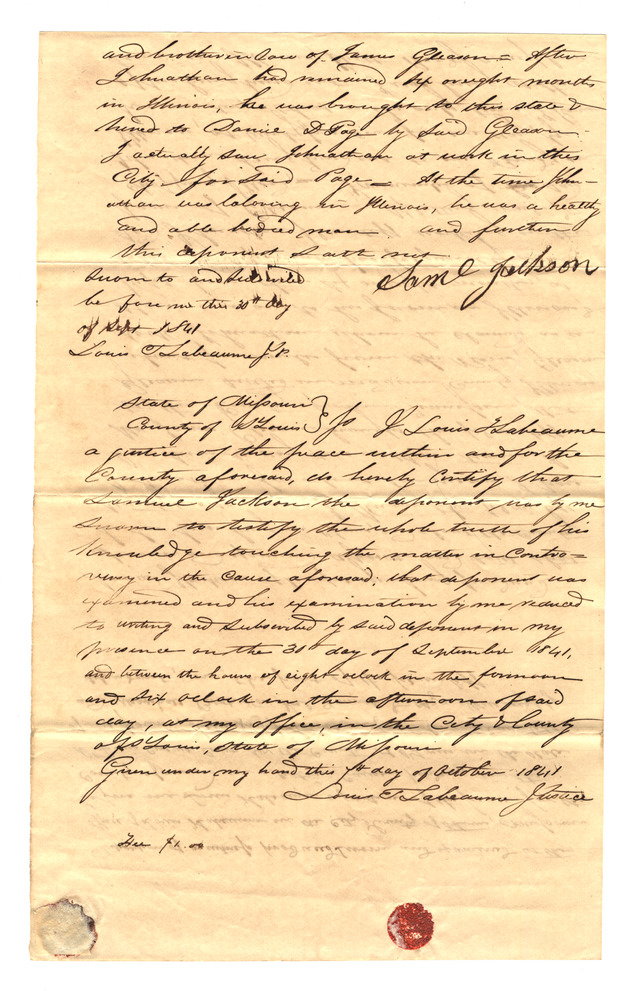 and brother in law of James Gleason = After
Johnathan had remained six or eight months
in Illinois, he was brought to this state &
hired to Daniel D Page by said Gleason -
I actually saw Johnathan at work in this
City for said Page = At the time John-
athan was laboring in Illinois, he was a healthy
and able bodied man. and further
this deponent saith not
Sworn to and subscribed
Saml Jackson
before me this 30th day
of Sept 1841
Louis T Labeaume J.P.
State of Missouri }
County of St Louis } ss I Louis T Labeaume
a justice of the peace within and for the
County aforesaid, do hereby Certify that
Samuel Jackson the deponent was by me
sworn to testify the whole truth of his
Knowledge touching the matter in Contro=
versy in the Cause aforesaid; that deponent was
examined and his examination by me reduced
to writing and subscribed by said deponent in my
presence on the 30 day of September 1841,
and between the hours of eight oclock in the forenoon
and six oclock in the afternoon of said
day, at my office, in the City & County
of St Louis, State of Missouri
Given under my hand this day of October 1841
Louis T. Labeaume Justice
Fee $1.00